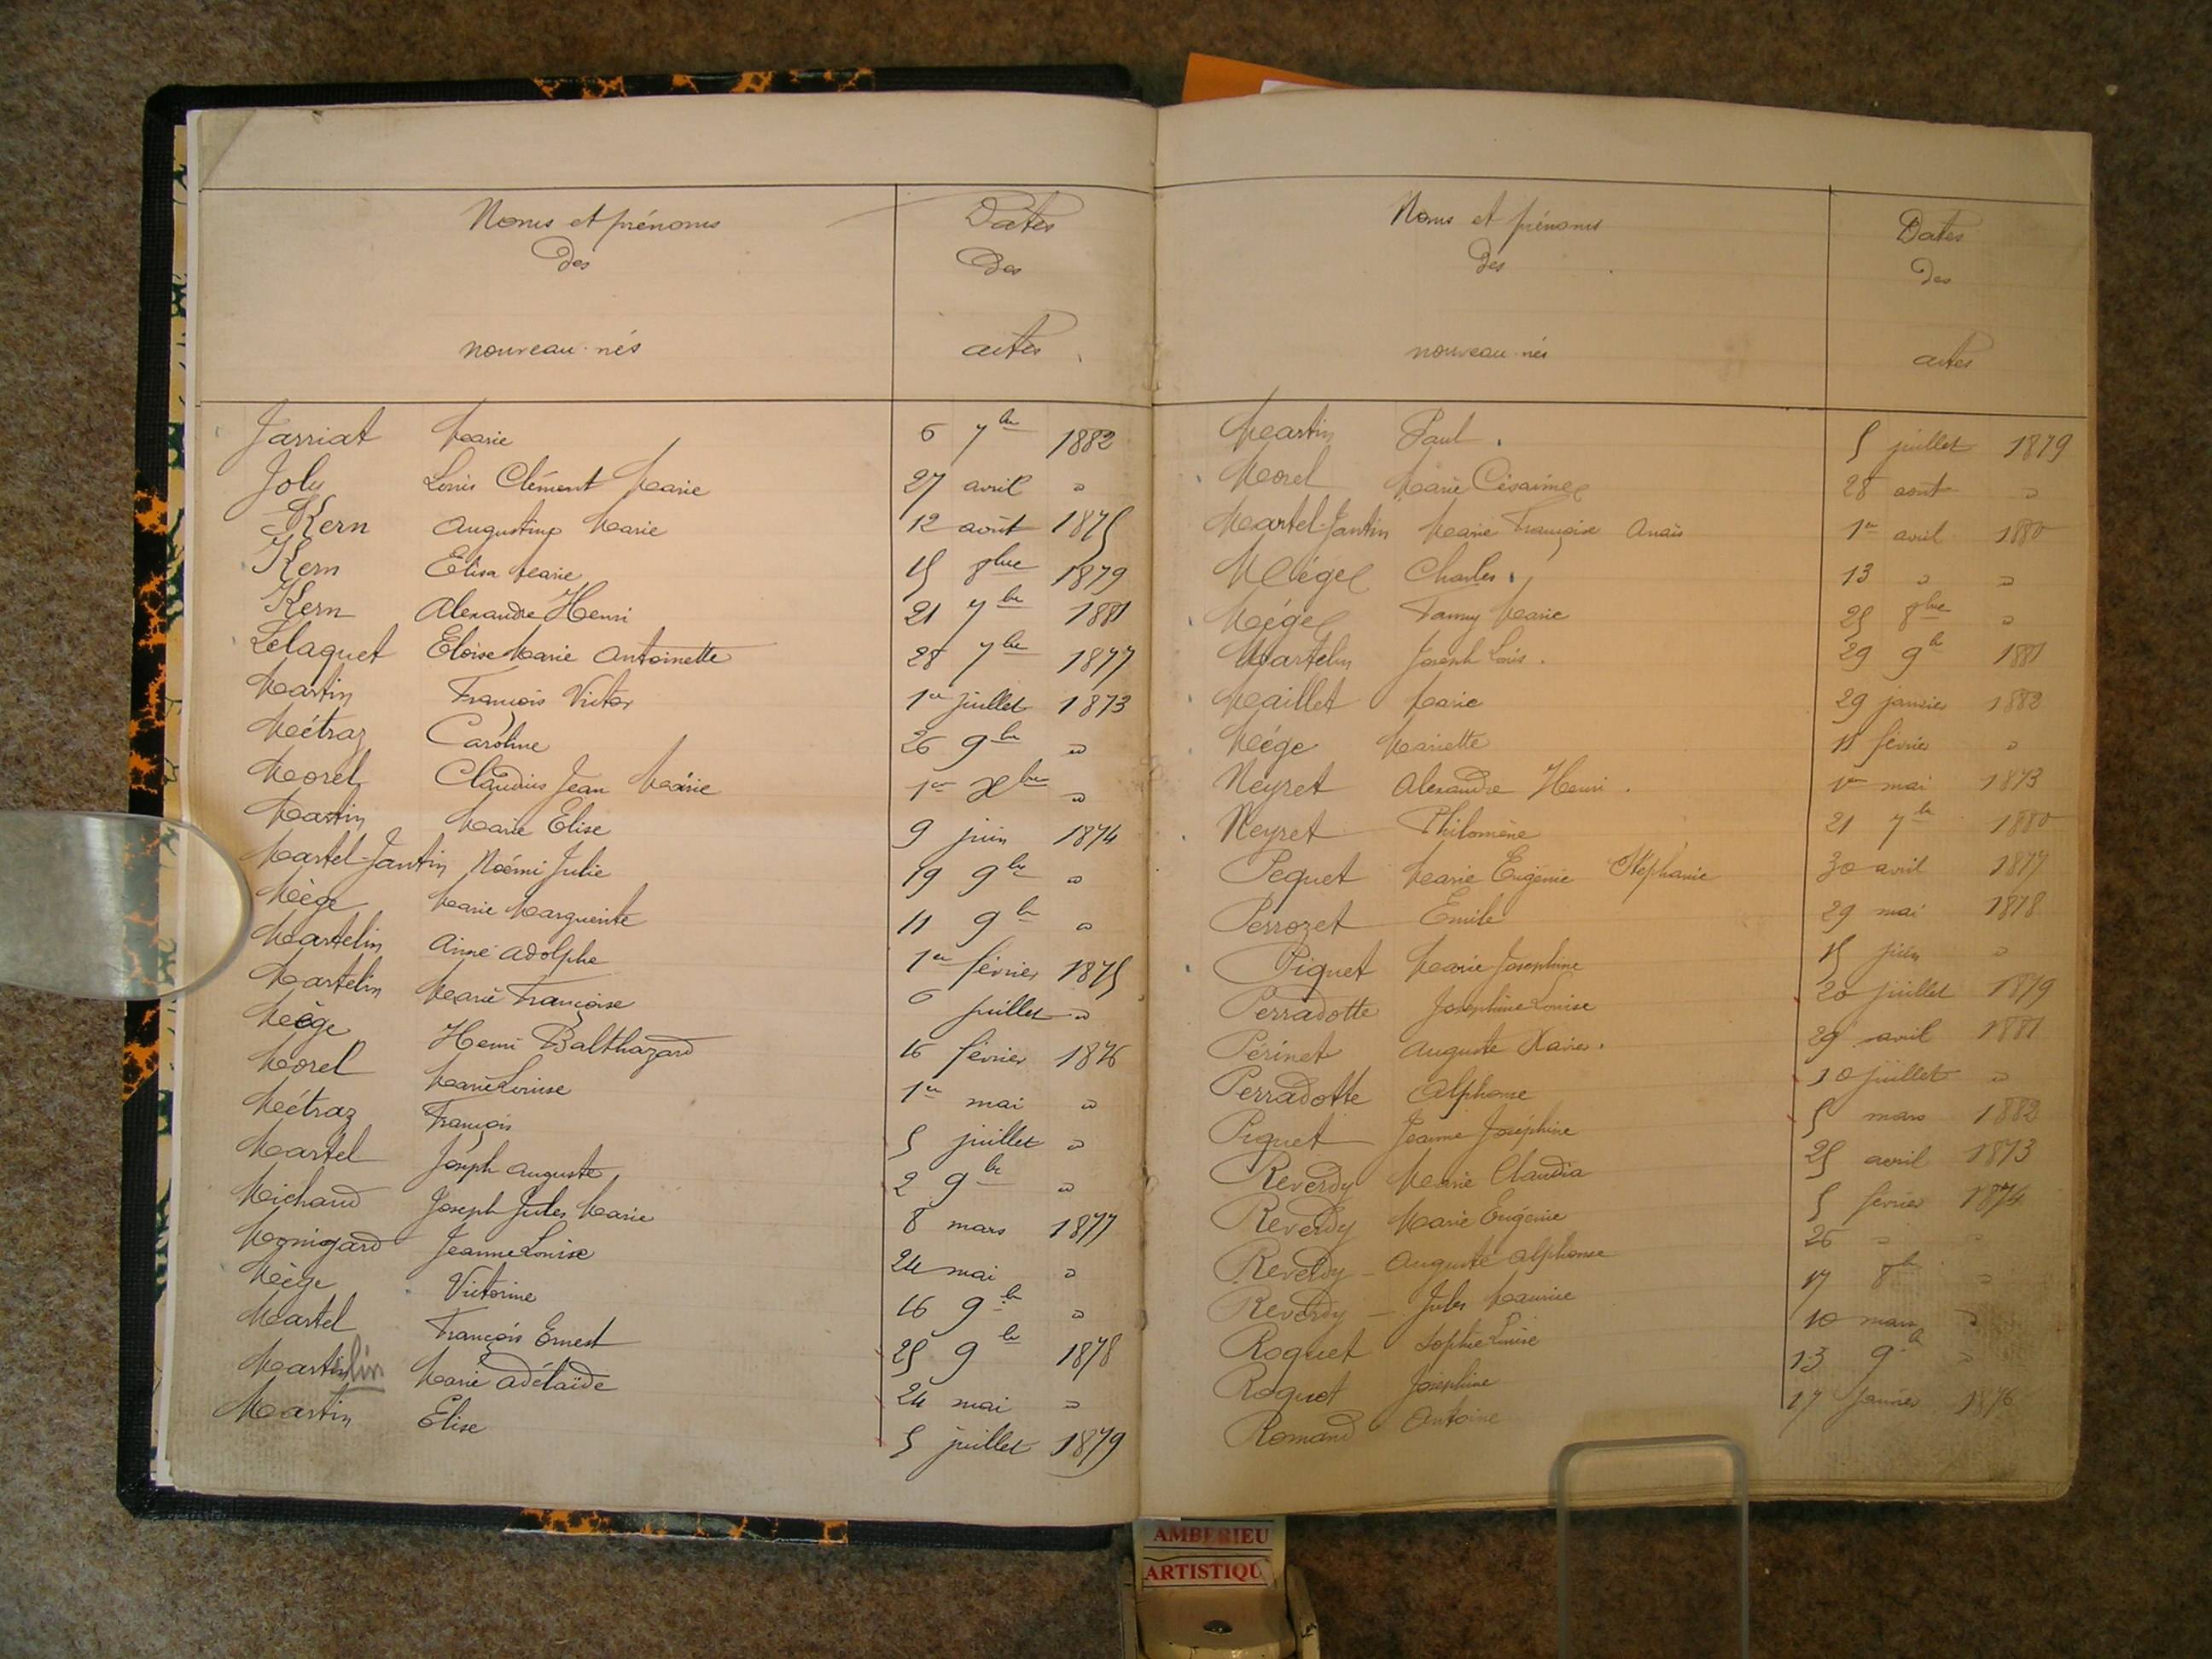 Noms et prénoms
des
nouveau-nés
Dates
des
actes
Jarriat Marie 6 7bre 1882
Joly Louis Clément Marie 27 avril "
Kern Augustine Marie 12 août 1875
Kern Elisa Marie 15 8bre 1879
Kern Alexandre Henri 21 7bre 1881
Lelaquet Eloïse Marie Antoinette 28 7bre 1877
Martin François Victor 1er juillet 1873
Métraz Caroline 26 9bre "
Morel Claudius Jean Marie 1er Xbre "
Martin Marie Elise 9 juin 1874
Martel-Jantin Noémi Julie 19 9bre "
Mège Marie Marguerite 11 9bre "
Martelin Aimé Adolphe 1er février 1875
Martelin Marie Françoise 6 juillet "
Mège Henri Balthazard 16 février 1876
Morel Marie Louise 1er mai "
Métraz François 5 juillet "
Martel Joseph Auguste 2 9bre "
Michaud Joseph Jules Marie 8 mars 1877
Jeanne Louise 24 mai "
Mège Victorine 16 9bre "
Martel François Ernest 25 9bre 1878
Martinlin Marie Adélaïde 24 mai "
Martin Elise 5 juillet 1879
Noms et prénoms
des
nouveau-nés
Dates
des
actes
Martin Paul. 5 juillet 1879
Morel Marie Césaime 28 aout "
Martel-Jantin Marie Françoise Anaïs 1er avril 1880
Mége Charles. 13 " "
Mége Fanny Marie 25 8bre "
Martelin Joseph Louis. 29 9bre 1881
Maillet Marie 29 janvier 1882
Mége Mariette 11 février "
Neyret Alexandre Henri. 1er mai 1873
Neyret Philomène 21 7bre 1880
Pequet Marie Eugénie Stéphanie 30 avril 1877
Perrozet Emile 29 mai 1878
Piquet Marie Joséphine 15 juin "
Perradotte Joséphine Louise 20 juillet 1879
Périnet Auguste Xavier. 29 avril 1881
Perradotte Alphonse 10 juillet "
Piquet Jeanne Joséphine 5 mars 1882
Reverdy Marie Claudia 25 avril 1873
Reverdy Marie Eugénie 5 février 1874
Reverdy - Auguste Alphonse 26 " "
Reverdy - Jules Maurice 17 8bre "
Roquet Sophie Louise 10 mars "
Roquet Joséphine 13 9bre "
Romand Antoine 17 Janvier 1876
AMBERIEU
ARTISTIQU